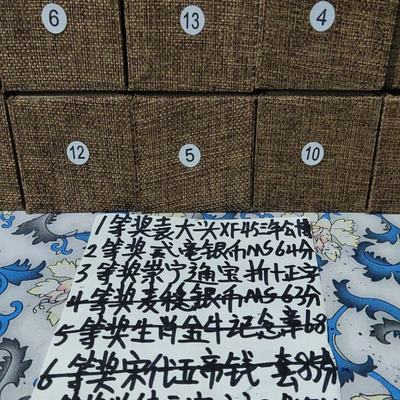 6 13 4
12 5 10
1等奖袁大头XF45三年公博
2等奖贰毫银币MS64分
3等奖崇宁通宝折十正字
4等奖麦穗银币MS63分
5等奖生肖金牛记念章68
6等奖宋代五帝钱一套85分